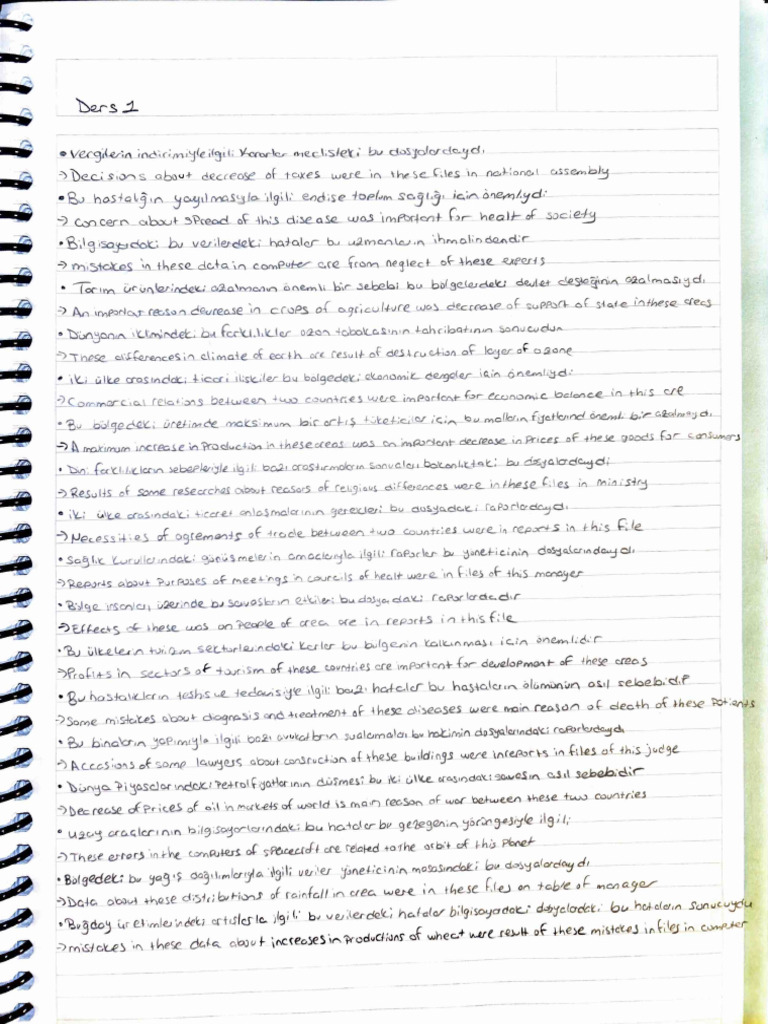 Ders 1
• Vergilerin indirimiyle ilgili kararlar meclisteki bu dosyalardaydı
→ Decisions about decrease of taxes were in these files in national assembly
• Bu hastalığın yayılmasıyla ilgili endişe toplum sağlığı için önemliydi
→ Concern about spread of this disease was important for healt of society
• Bilgisayardaki bu verilerdeki hatalar bu uzmanların ihmalindendir
→ mistakes in these data in computer are from neglect of these experts
• Tarım ürünlerindeki azalmanın önemli bir sebebi bu bölgelerdeki devlet desteğinin azalmasıydı
→ An important reason decrease in crops of agriculture was decrease of support of state in these areas
• Dünyanın iklimindeki bu farklılıklar ozon tabakasının tahribatının sonucudur
→ These differences in climate of earth are result of destruction of layer of ozone
• iki ülke arasındaki ticari ilişkiler bu bölgedeki ekonomik dengeler için önemliydi
→ Commercial relations between two countries were important for economic balance in this are
• Bu bölgedeki üretimde maksimum bir artış tüketiciler için bu malların fiyatlarında önemli bir azalmaydı
→ A maximum increase in Production in these areas was an important decrease in Prices of these goods for consumers
• Dini farklılıkların sebepleriyle ilgili bazı araştırmaların sonuçları bakanlıktaki bu dosyalardaydı
→ Results of some researches about reasons of religious differences were in these files in ministry
• iki ülke arasındaki ticaret anlaşmalarının gerekleri bu dosyadaki raporlardaydı
→ Necessities of agrements of trade between two countries were in reports in this file
• Sağlık kurullarındaki görüşmelerin amaçlarıyla ilgili raporlar bu yöneticinin dosyalarındaydı
→ Reports about Purposes of meetings in councils of healt were in files of this manager
• Bölge insanları üzerinde bu savaşların etkileri bu dosyadaki raporlardadır
→ Effects of these was on People of area are in reports in this file
• Bu ülkelerin turizm sektörlerindeki karlar bu bölgenin kalkınması için önemlidir
→ Profits in sectors of tourism of these countries are important for development of these areas
• Bu hastalıkların teşhis ve tedavisiyle ilgili bazı hatalar bu hastaların ölümünün asıl sebebidir
→ Some mistakes about diagnosis and treatment of these diseases were main reason of death of these Patients
• Bu binaların yapımıyla ilgili bazı avukatların suçlamaları bu hakimin dosyalarındaki raporlardaydı
→ Accasions of some lawyers about construction of these buildings were in reports in files of this judge
• Dünya Piyasalarındaki Petrol fiyatlarının düşmesi bu iki ülke arasındaki savaşın asıl sebebidir
→ Decrease of Prices of oil in markets of world is main reason of war between these two countries
• uzay araçlarının bilgisayarlarındaki bu hatalar bu gezegenin yörüngesiyle ilgili
→ These errors in the computers of spacecraft are related to the orbit of this Planet
• Bölgedeki bu yağış dağılımlarıyla ilgili veriler yöneticinin masasındaki bu dosyalardaydı
→ Data about these distributions of rainfall in area were in these files on table of manager
• Buğday üretimlerindeki artışlarla ilgili bu verilerdeki hatalar bilgisayardaki dosyalardaki bu hataların sonucuydu
→ mistakes in these data about increases in Productions of wheat were result of these mistakes in files in computer